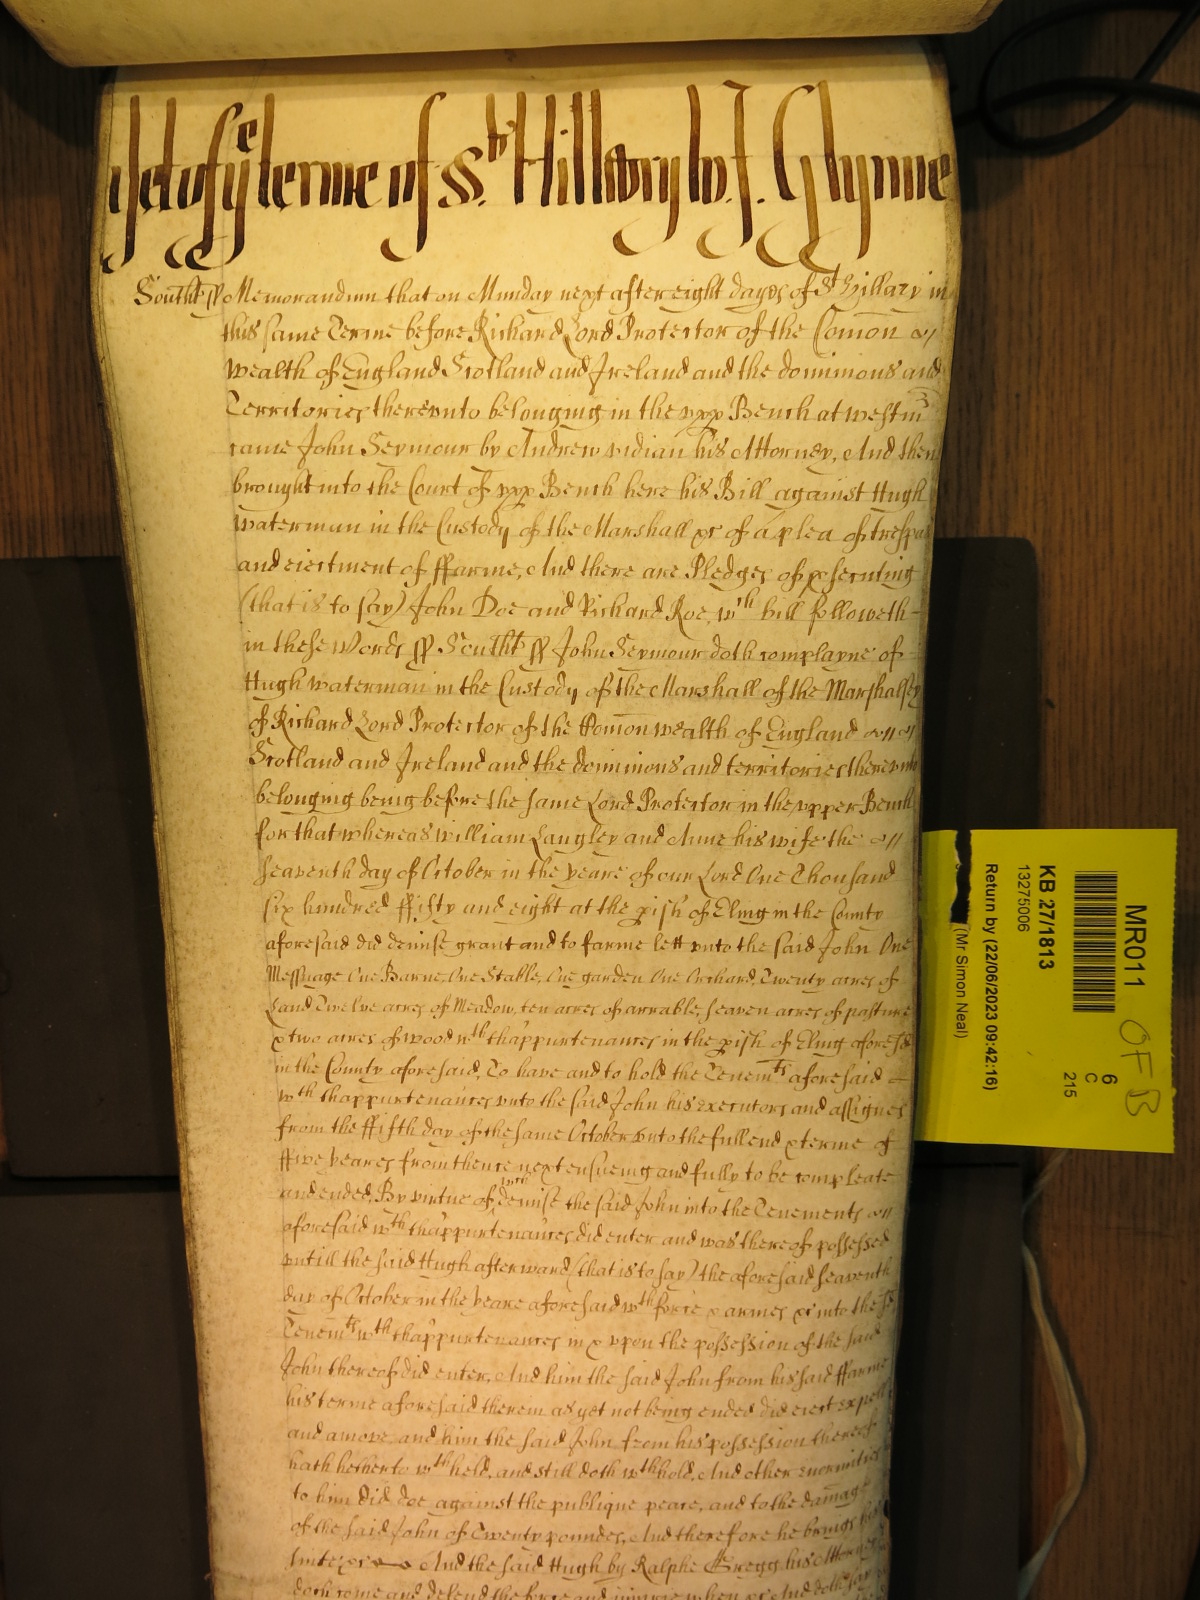 yet of ye terme of St. Hillary by J. Glynne
Southt ss Memorandum that on Munday next after eight dayes of St Hillary in
this same Terme before Richard Lord Protector of the Comon
wealth of England Scotland and Ireland and the dominions and
Territories therevnto belonging in the vpp Bench at westm
came John Seymour by Andrew vidian his Attorney, And then
brought into the Court of vpp Bench here his Bill against Hugh
Waterman in the Custody of the Marshall &c of a plea of trespas
and eiectment of ffarme, And there are Pledges of psecuting
(that is to say) John Doe and Richard Roe, wch bill followeth
in these Words ss Southt ss John Seymour doth complayne of
Hugh Waterman in the Custody of the Marshall of the Marshalsey
of Richard Lord Protector of the Comon wealth of England
Scotland and Ireland and the dominions and territories therevnto
belonging being before the same Lord Protector in the vpper Bench
for that whereas William Langley and Anne his wife the
seaventh day of October in the yeare of our Lord One Thousand
six hundred ffifty and eight at the pish of Eling in the County
aforesaid did demise grant and to farme lett vnto the said John One
Messuage One Barne One Stable, One garden One Orchard, Twenty acres of
Land Twelve acres of Meadow, ten acres of arrable, seaven acres of pasture
& two acres of wood wth thappurtenances in the pish of Eling aforesd
in the County aforesaid, To have and to hold the Tenemts aforesaid
wth thappurtenances vnto the said John his executors and assignes
from the ffifth day of the same October vnto the full end & terme of
ffive yeares from thence next ensueing and fully to be compleate
and ended, By virtue of wch demise the said John into the Tenements
aforesaid wth thappurtenances did enter and was thereof possessed
vntill the said Hugh afterward (that is to say) the aforesaid seaventh
day of October in the yeare aforesaid wth force & armes &c into the sd
Tenemts wth thappurtenances in & vpon the possession of the said
John thereof did enter, And him the said John from his said ffarme
his terme aforesaid therein as yet not being ended did eiect expell
and amove, and him the said John from his possession thereof
hath hetherto wthheld, and still doth wthhold, And other enormities
to him did doe against the publique peace, and to the damage
of the said John of Twenty poundes, And therefore he brings his
suite &c And the said Hugh by Ralphe Gregg his Attorney
doth come and defend the force and iniurie when &c And doth say
MR011
6
C
215
OF B
KB 27/1813
13275006
Return by (22/06/2023 09:42:16)
(Mr Simon Neal)